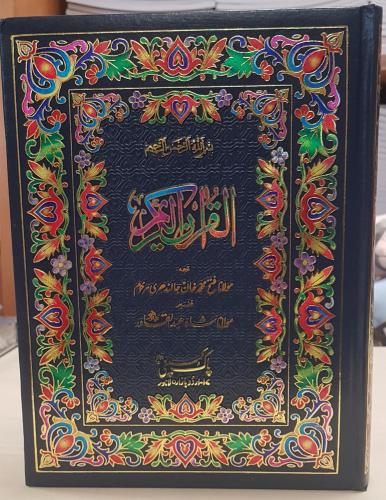 بسم الله الرحمن الرحيم
القرآن الكريم
ترجمہ
مولانا فتح محمد خان جالندھری مرحوم
تفسیر
مولانا شاہ عبدالقادر
پاک کمپنی
۱۷۔اردو بازار لاہور